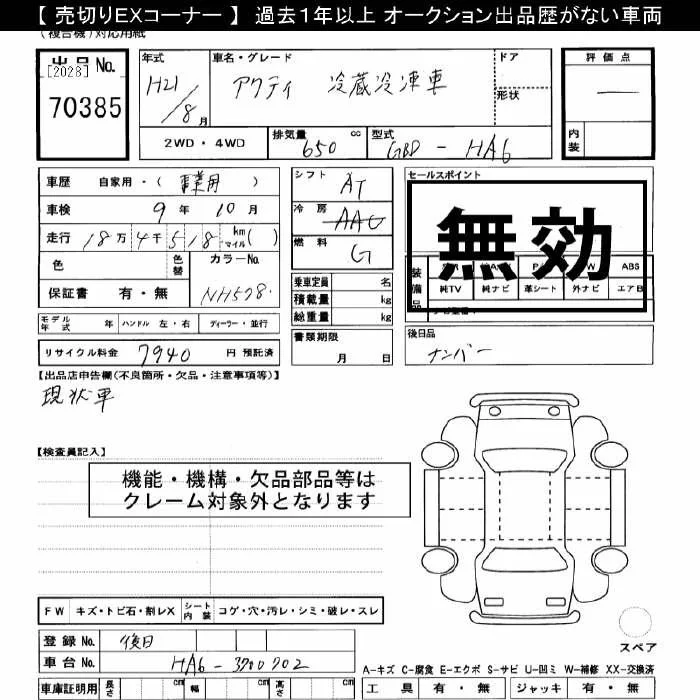 【 売切りEXコーナー 】 過去1年以上 オークション出品歴がない車両
(複合機)対応用紙
出品No.
[2028]
70385
年式
H21/8月
車名・グレード
アクティ 冷蔵冷凍車
ドア
形状
評価点
―
内装
2WD・4WD
排気量 650 cc
型式 GBD - HA6
車歴 自家用・( 事業用 )
車検 9年 10月
走行 18万 4千 518 km マイル ( )
色
色替
カラーNo.
NH578
保証書 有・無
シフト AT
冷房 AAC
燃料 G
乗車定員 名
積載量 kg
総重量 kg
書類期限
月 日
セールスポイント
無効
装備品
ABS
純TV 純ナビ 革シート 外ナビ エアB
後日品
ナンバー
モデル年式 年 ハンドル 左・右 ディーラー・並行
リサイクル料金 7940 円 預託済
【出品店申告欄(不良箇所・欠品・注意事項等)】
現状車
【検査員記入】
機能・機構・欠品部品等は
クレーム対象外となります
FW キズ・トビ石・割レX シート内装 コゲ・穴・汚レ・シミ・破レ・スレ
登録No. 後日
車台No. HA6-3700702
車庫証明用 長さ cm 幅 cm 高さ cm
スペア
A-キズ C-腐食 E-エクボ S-サビ U-凹ミ W-補修 XX-交換済
工具 有・無 ジャッキ 有・無